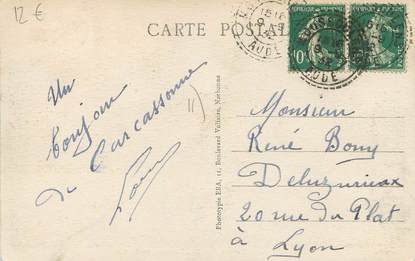 12 €
CARTE POSTALE
AUDE
10
Un
bonjour
de Carcassonne
Phototypie ERA, 11, Boulevard Vallière, Narbonne
Monsieur
René Bony
20 rue du Plat
à Lyon